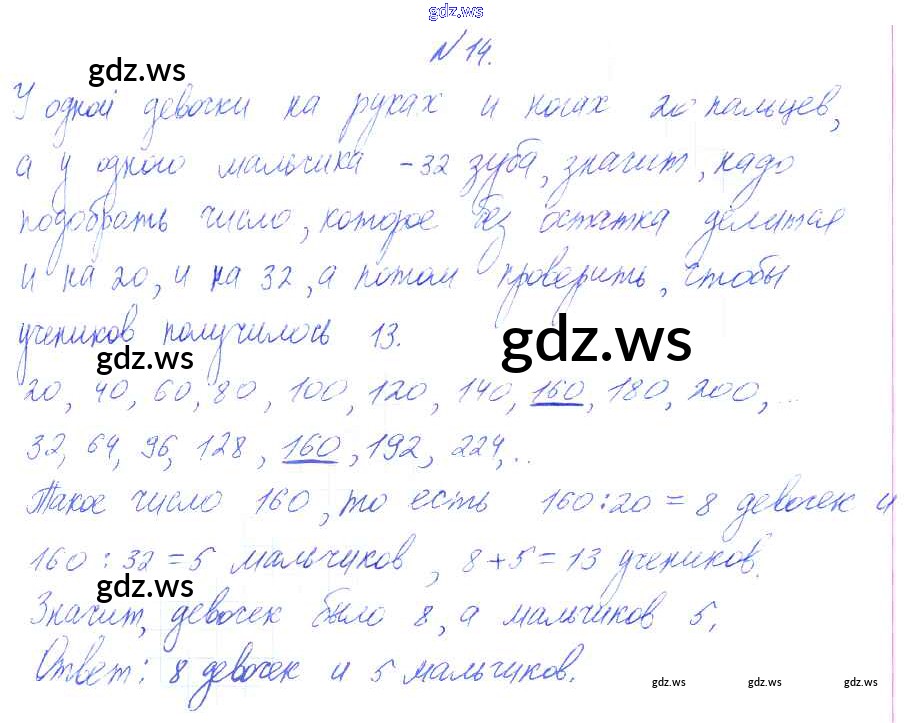 gdz.ws
N 14.
gdz.ws
У одной девочки на руках и ногах 20 пальцев,
а у одного мальчика - 32 зуба, значит, надо
подобрать число, которое без остатка делится
и на 20, и на 32, а потом проверить, чтобы
учеников получилось 13.
gdz.ws
gdz.ws
20, 40, 60, 80, 100, 120, 140, 160, 180, 200, ...
32, 64, 96, 128, 160, 192, 224, ...
Такое число 160, то есть 160:20 = 8 девочек и
160 : 32 = 5 мальчиков, 8+5 = 13 учеников.
gdz.ws
Значит, девочек было 8, а мальчиков 5.
Ответ: 8 девочек и 5 мальчиков.
gdz.ws gdz.ws gdz.ws